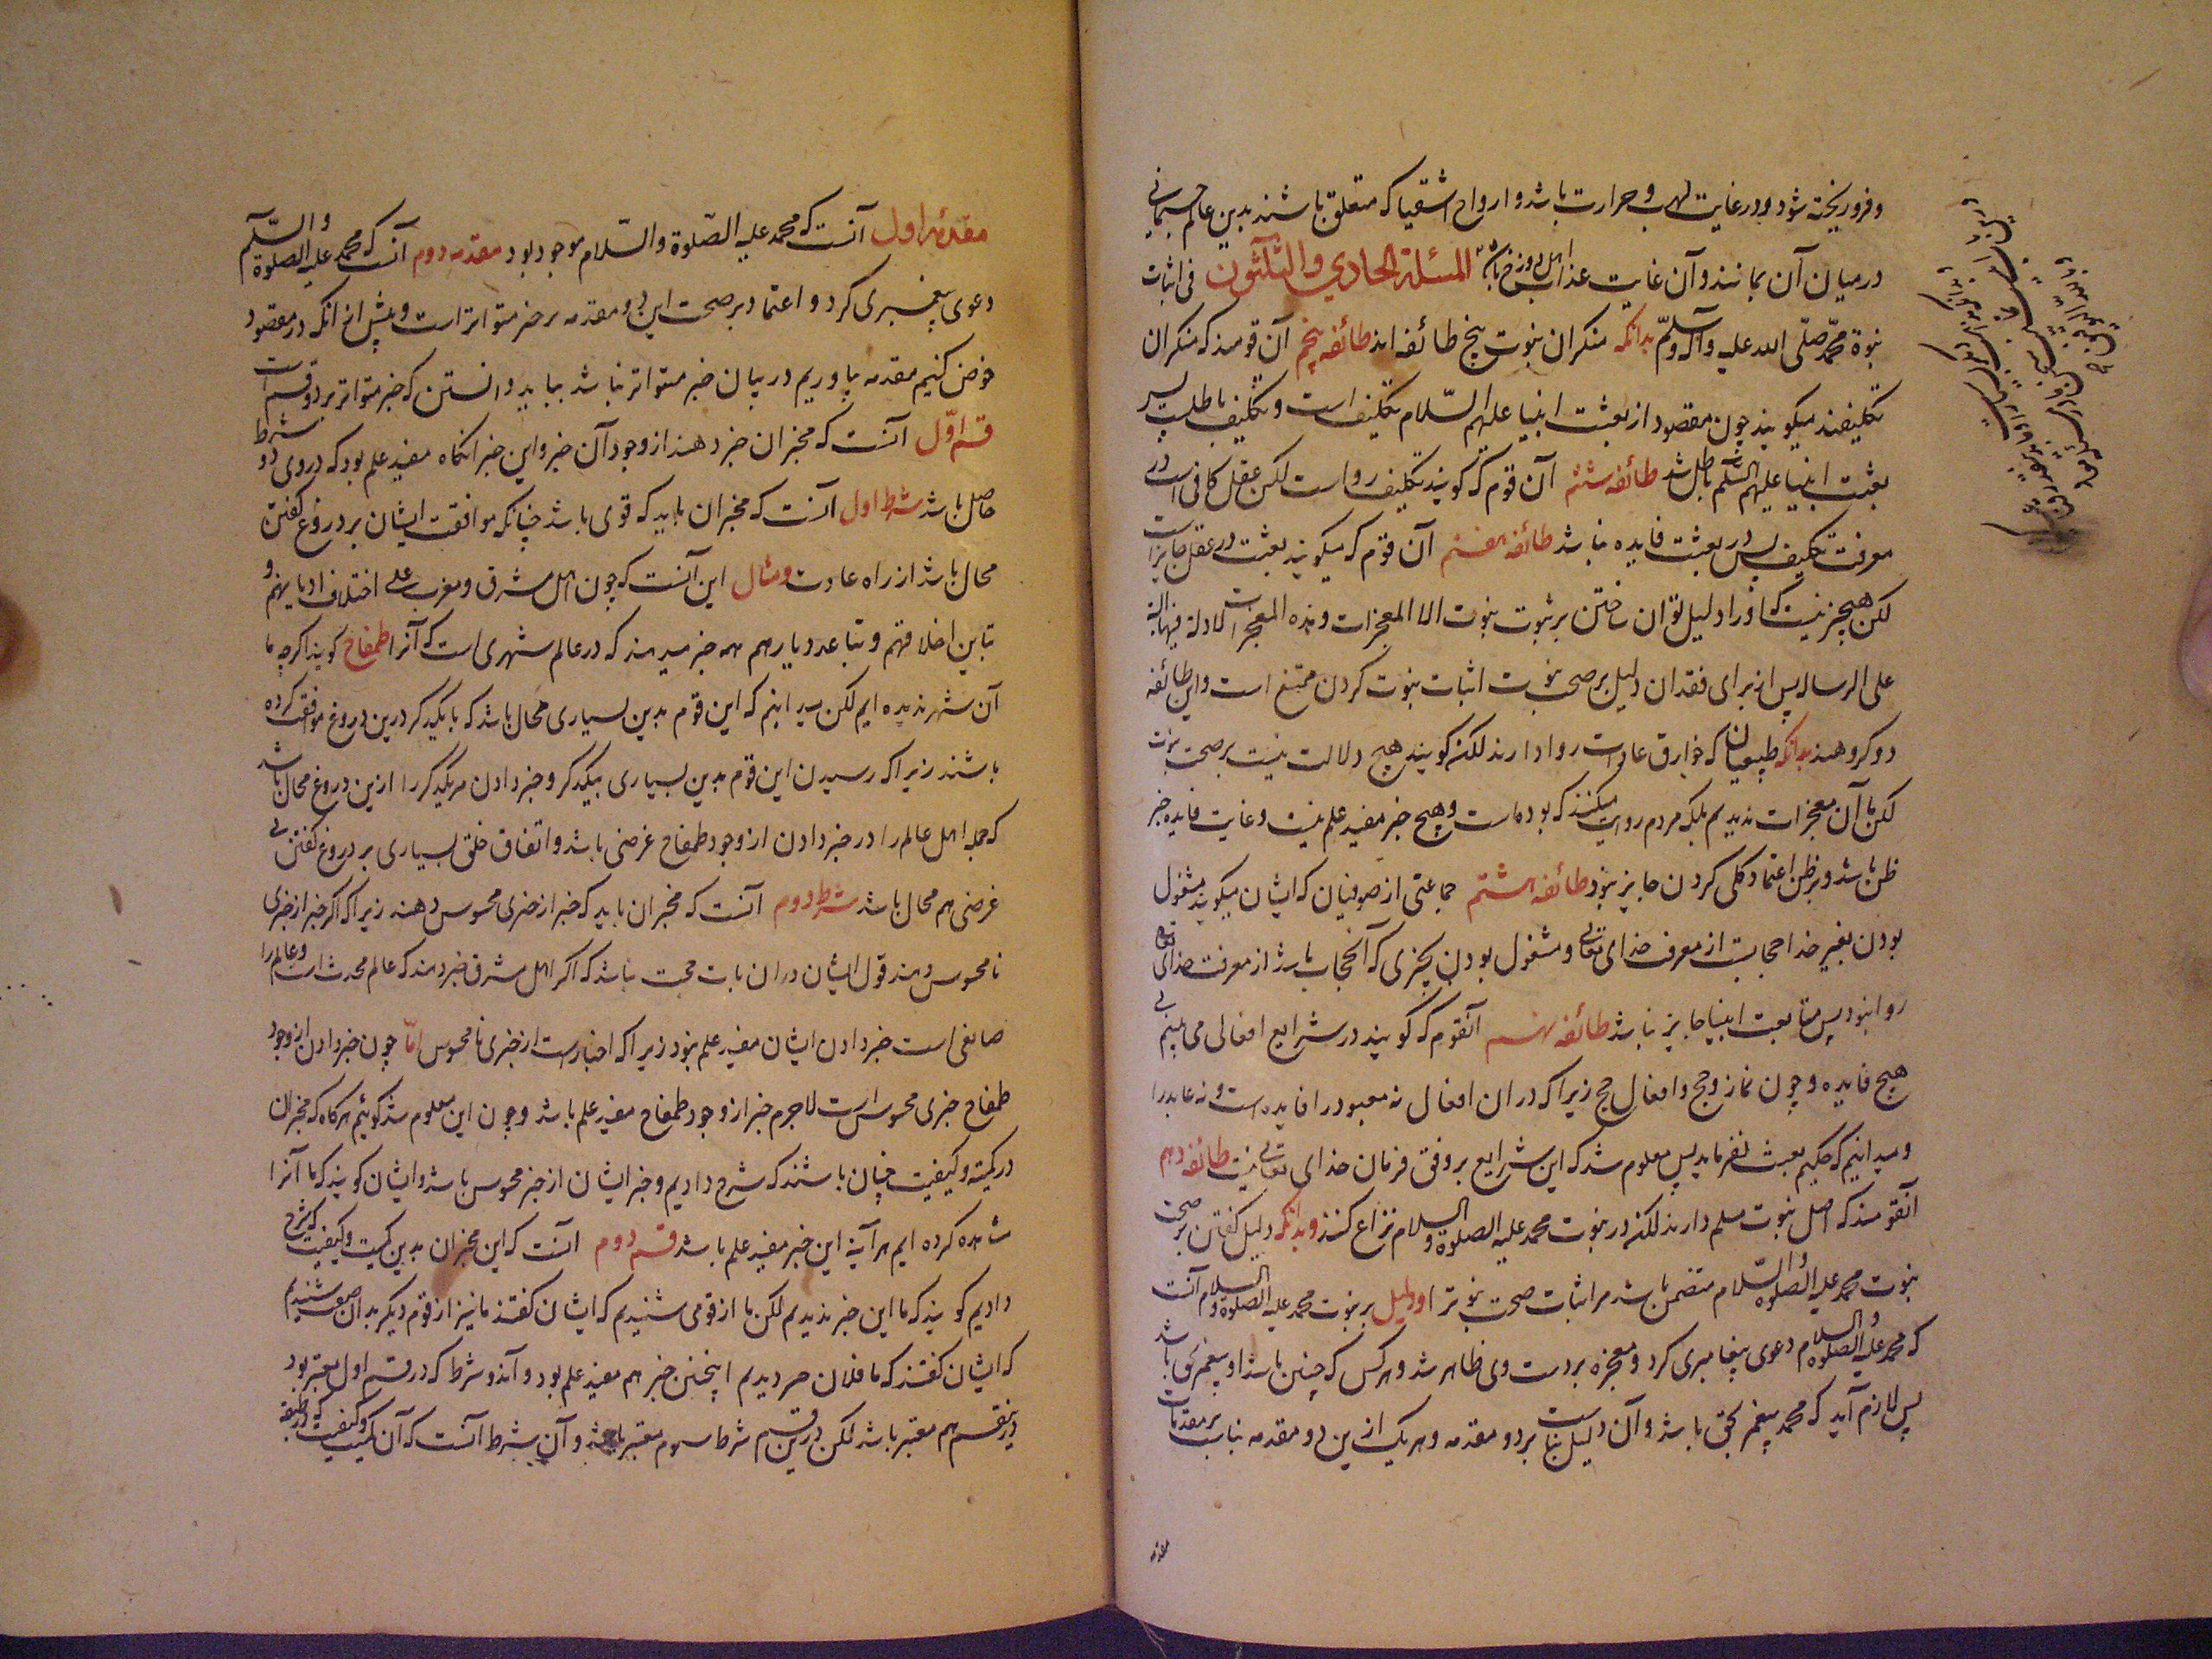 و فرو ریخته شود و در غایت لهب و حرارت باشد و ارواح اشقیا که متعلق باشند بدین عالم جسمانی
در میان آن بمانند و آن غایت عذاب اهل دوزخ باشد المسئلة الحادي والثلثون فی اثبات
نبوة محمّد صلّی الله علیه وآله وسلّم بدانکه منکران نبوت پنج طائفه اند طائفه پنجم آن قومند که منکران
تکلیفند میکویند چون مقصود از بعثت انبیا علیهم السّلام تکلیف است و تکلیف باطل پس
بعثت انبیا علیهم السّلم باطل شد طائفه ششم آن قوم که کویند تکلیف رواست لکن عقل کافی است در
معرفت تکلیف پس در بعثت فایده نباشد طائفه هفتم آن قوم که میکویند بعثت در عقل جایز است
لکن هیچ چیز نیست که او را دلیل توان ساختن بر ثبوت نبوت الا المعجزات و هذه المعجزات لا دلالة فیها البتة
علی الرساله پس از برای فقدان دلیل بر صحت نبوت اثبات نبوت کردن ممتنع است و این طائفه
دو کروهند بدانکه طبیعیان که خوارق عادات روا دارند لکن کویند هیچ دلالت نیست بر صحت نبوت
لکن ما آن معجزات ندیدیم بلکه مردم روایت میکنند که بوده است و هیچ خبر مفید علم نیست و غایت فایده خبر
ظن باشد و بر ظن اعتماد کلی کردن جایز نبود طائفه هشتم جماعتی از صوفیان که ایشان میکویند مشغول
بودن بغیر خدا حجابست از معرفت خدای تعالی و مشغول بودن بچیزی که آن حجاب باشد از معرفت خدای تعالی
روا نبود پس متابعت انبیا جایز نباشد طائفه نهم آنقوم که کویند در شرایع افعالی می بینیم بی
هیچ فایده و چون نماز و حج و افعال حج زیرا که در ان افعال نه معبود را فایده است و نه عابد را
و میدانیم که حکیم بعبث نفرماید پس معلوم شد که این شرایع بر وفق فرمان خدای تعالی نیست طائفه دهم
آنقومند که اصل نبوت مسلم دارند لکن در نبوت محمد علیه الصلوة والسلام نزاع کنند و بدانکه دلیل کفتن بر صحت
نبوت محمد علیه الصلوة والسّلام متضمن باشد مر اثبات صحت نبوت را و دلیل بر نبوت محمد علیه الصلوة والسلام آنست
که محمد علیه الصلوة والسلام دعوی پیغامبری کرد و معجزه بر دست وی ظاهر شد و هر کس که چنین باشد او پیغمبر حق باشد
پس لازم آید که محمد پیغمبر بحق باشد و آن دلیل بناست بر دو مقدمه و هر یک ازین دو مقدمه بناست بر مقدمات
مقدمه
مقدّمهٔ اول آنست که محمد علیه الصّلوة والسّلام موجود بود مقدمه دوم آنست که محمد علیه الصلوة والسّلم
دعوی پیغمبری کرد و اعتماد بر صحت این دو مقدمه بر خبر متواتر است و پیش از انکه در مقصود
خوض کنیم مقدمه بیاوریم در بیان خبر متواتر نباشد بباید دانستن که خبر متواتر بر دو قسم است
قسم اوّل آنست که مخبران خبر دهند از وجود آن خبر و این خبر انکاه مفید علم بود که در وی دو شرط
حاصل باشد شرط اول آنست که مخبران باید که قومی باشد چنانکه موافقت ایشان بر دروغ کفتن
محال باشد از راه عادت و مثال این آنست که چون اهل مشرق و مغرب علی اختلاف ادیانهم و
تباین اخلاقهم و تباعد دیارهم همه خبر میدهند که در عالم شهری است که آنرا طمغاج کویند اکرچه ما
آن شهر ندیده ایم لکن میدانیم که این قوم بدین بسیاری محال باشد که با یکدیکر درین دروغ موافقت کرده
باشند زیرا که رسیدن این قوم بدین بسیاری بیکدیکر و خبر دادن مر یکدیکر را ازین دروغ محال باشد
که جمله اهل عالم را در خبر دادن از وجود طمغاج غرضی باشد و اتفاق خلق بسیاری بر دروغ کفتن بی
غرضی هم محال باشد شرط دوم آنست که مخبران باید که خبر از خبری محسوس دهند زیرا که اکر خبر از خبری
نامحسوس دهند قول ایشان در ان بابت حجت نباشد که اکر اهل مشرق خبر دهند که عالم محدث است و عالم را
صانعی است خبر دادن ایشان مفید علم نبود زیرا که اخبارست از خبری نامحسوس امّا چون خبر دادن از وجود
طمغاج خبری محسوس است لاجرم خبر از وجود طمغاج مفید علم باشد و چون این معلوم شد کوئیم هرکاه که مخبران
در کمیّت و کیفیت چنان باشند که شرح دادیم و خبر ایشان از خبر محسوس باشد و ایشان کویند که ما آنرا
مشاهده کرده ایم هر آینه این خبر مفید علم باشد قسم دوم آنست که این مخبران بدین کمیت و کیفیت که شرح
دادیم کویند که ما این خبر ندیدیم لکن ما از قومی شنیدیم که ایشان کفتند ما نیز از قوم دیکر بدان صفت شنیدیم
که ایشان کفتند که ما فلان خبر دیدیم اینچنین خبر هم مفید علم بود و آن دو شرط که در قسم اول معتبر بود
درین قسم هم معتبر باشد لکن درین قسم شرط سوم معتبر باشد و آن شرط آنست که آن کمیت و کیفیت که در طبقه